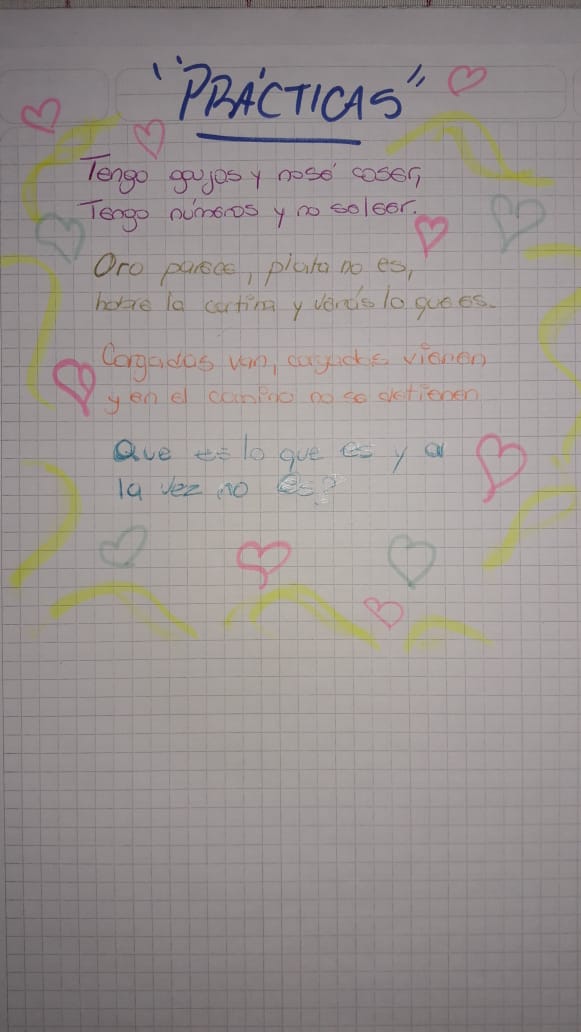 "PRÁCTICAS"
Tengo gajos y nosé coser,
Tengo números y no se leer.
Oro parece, plata no es,
habre la cortina y verás lo que es.
Cargadas van, cargadas vienen
y en el camino no se detienen
Que es lo que es y a
la vez no es?